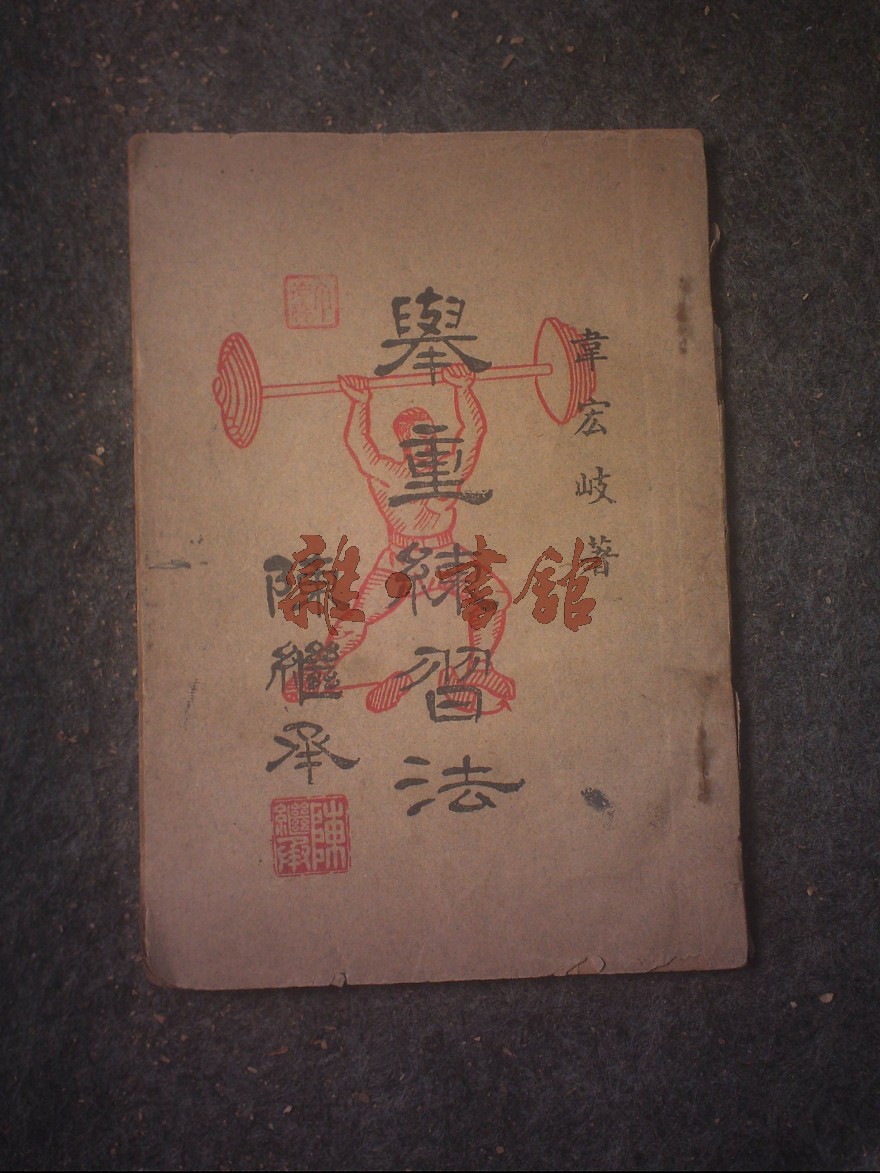 韋宏岐著
舉重練習法
陳繼承
陳繼承
雜·書館